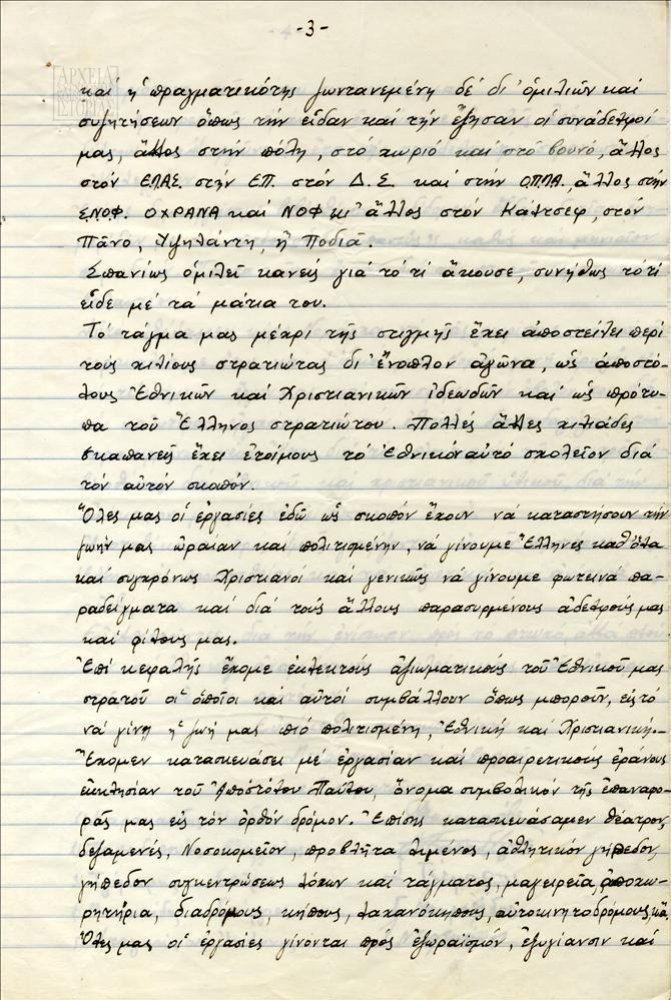 -3-
ΑΡΧΕΙΑ
ΙΣΤΟΡΙΑΣ
καί ἡ πραγματικότης ζωντανεμένη δέ δι' ὁμιλιῶν καί
συζητήσεων ὅπως τήν εἶδαν καί τήν ἔζησαν οἱ συνάδελφοί
μας, ἄλλος στήν πόλη, στό χωριό καί στό βουνό, ἄλλος
στόν ΕΛΑΣ. στήν ΕΠ. στόν Δ.Σ. καί στήν Ο.Π.Λ.Α., ἄλλος στήν
ΣΝΟΦ. ΟΧΡΑΝΑ καί ΝΟΦ κι' ἄλλος στόν Καλτσεφ, στόν
Πᾶνο, Ὑψηλάντη, ἤ Ποδιά.
Σπανίως ὁμιλεῖ κανείς γιά τό τί ἄκουσε, συνήθως τό τί
εἶδε μέ τά μάτια του.
Τό τάγμα μας μέχρι τῆς στιγμῆς ἔχει ἀποστείλει περί
τούς χιλίους στρατιώτας δι' ἔνοπλον ἀγῶνα, ὡς ἀποστό-
λους Ἐθνικῶν καί Χριστιανικῶν ἰδεωδῶν καί ὡς πρότυ-
πα τοῦ Ἕλληνος στρατιώτου. Πολλές ἄλλες χιλιάδες
σκαπανεῖς ἔχει ἑτοίμους τό Ἐθνικόν αὐτό σχολεῖον διά
τόν αὐτόν σκοπόν.
Ὅλες μας οἱ ἐργασίες ἐδῶ ὡς σκοπόν ἔχουν νά καταστήσουν τήν
ζωήν μας ὡραίαν καί πολιτισμένην, νά γίνουμε Ἕλληνες καθ' ὅλα
καί συγχρόνως Χριστιανοί καί γενικῶς νά γίνουμε φωτεινά πα-
ραδείγματα καί διά τούς ἄλλους παρασυρμένους ἀδελφούς μας
καί φίλους μας.
Ἐπί κεφαλῆς ἔχομε ἐκλεκτούς ἀξιωματικούς τοῦ Ἐθνικοῦ μας
στρατοῦ οἱ ὁποῖοι καί αὐτοί συμβάλλουν ὅπως μποροῦν, εἰς τό
νά γίνῃ ἡ ζωή μας πιό πολιτισμένη, Ἐθνική καί Χριστιανική.-
Ἔχομεν κατασκευάσει μέ ἐργασίαν καί προαιρετικούς ἐράνους
ἐκκλησίαν τοῦ Ἀποστόλου Παύλου, ὄνομα συμβολικόν τῆς ἐπαναφο-
ρᾶς μας εἰς τόν ὀρθόν δρόμον. Ἐπίσης κατασκευάσαμεν θέατρον,
δεξαμενές, Νοσοκομεῖον, προβλῆτα λιμένος, ἀθλητικόν γήπεδον,
γήπεδον συγκεντρώσεως λόχων καί τάγματος, μαγειρεῖα, ἀποχω-
ρητήρια, διαδρόμους, κήπους, λαχανόκηπους, αὐτοκινητοδρόμους, κἄ.
Ὅλες μας οἱ ἐργασίες γίνονται πρός ἐξωραϊσμόν, ἐξυγίανσιν καί